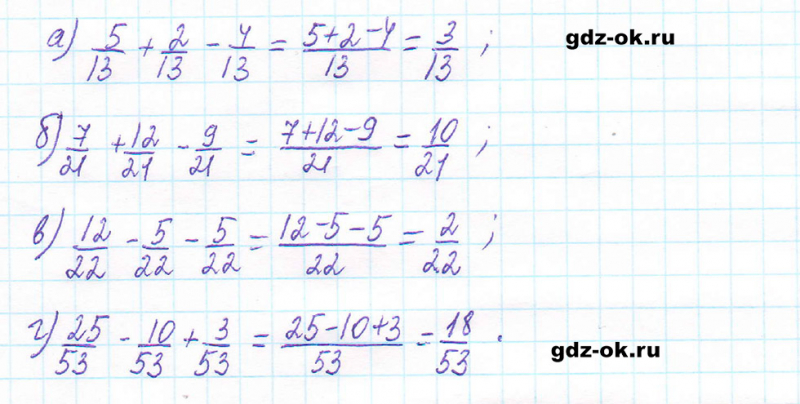 а) 5/13 + 2/13 - 4/13 = (5+2-4)/13 = 3/13 ; gdz-ok.ru
б) 7/21 + 12/21 - 9/21 = (7+12-9)/21 = 10/21 ;
в) 12/22 - 5/22 - 5/22 = (12-5-5)/22 = 2/22 ;
г) 25/53 - 10/53 + 3/53 = (25-10+3)/53 = 18/53 . gdz-ok.ru